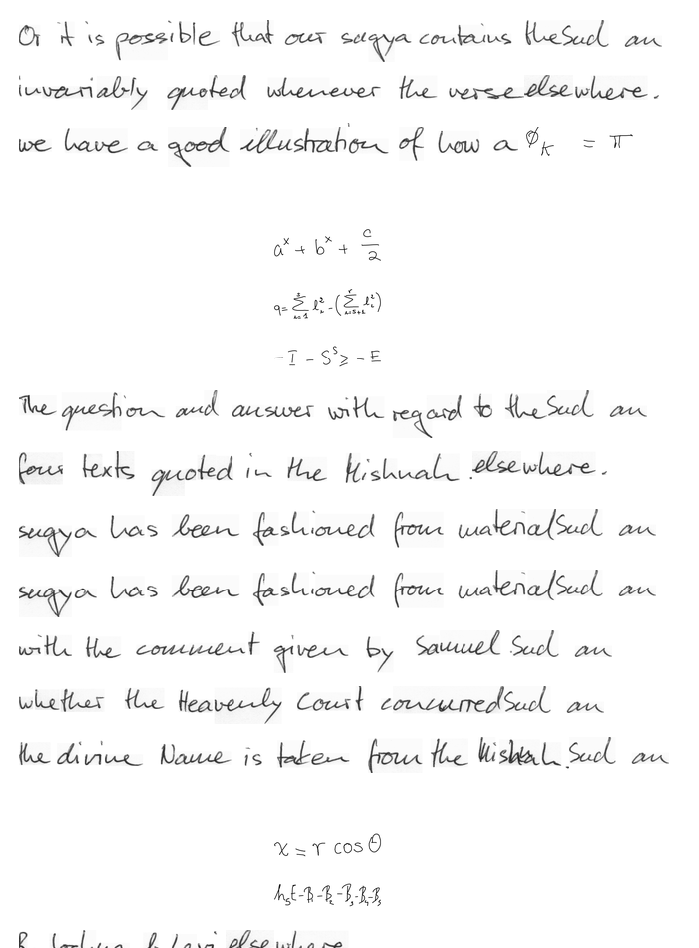 Or it is possible that our sugya contains the Sud an
invariably quoted whenever the verse elsewhere.
we have a good illustration of how a ϕ_K = π
a^x + b^x + c/2
-I - S^s ≥ -E
The question and answer with regard to the Sud an
four texts quoted in the Mishnah elsewhere.
sugya has been fashioned from material Sud an
sugya has been fashioned from material Sud an
with the comment given by Samuel Sud an
whether the Heavenly Court concurred Sud an
the divine Name is taken from the Mishnah. Sud an
x = r cos θ
elsewhere